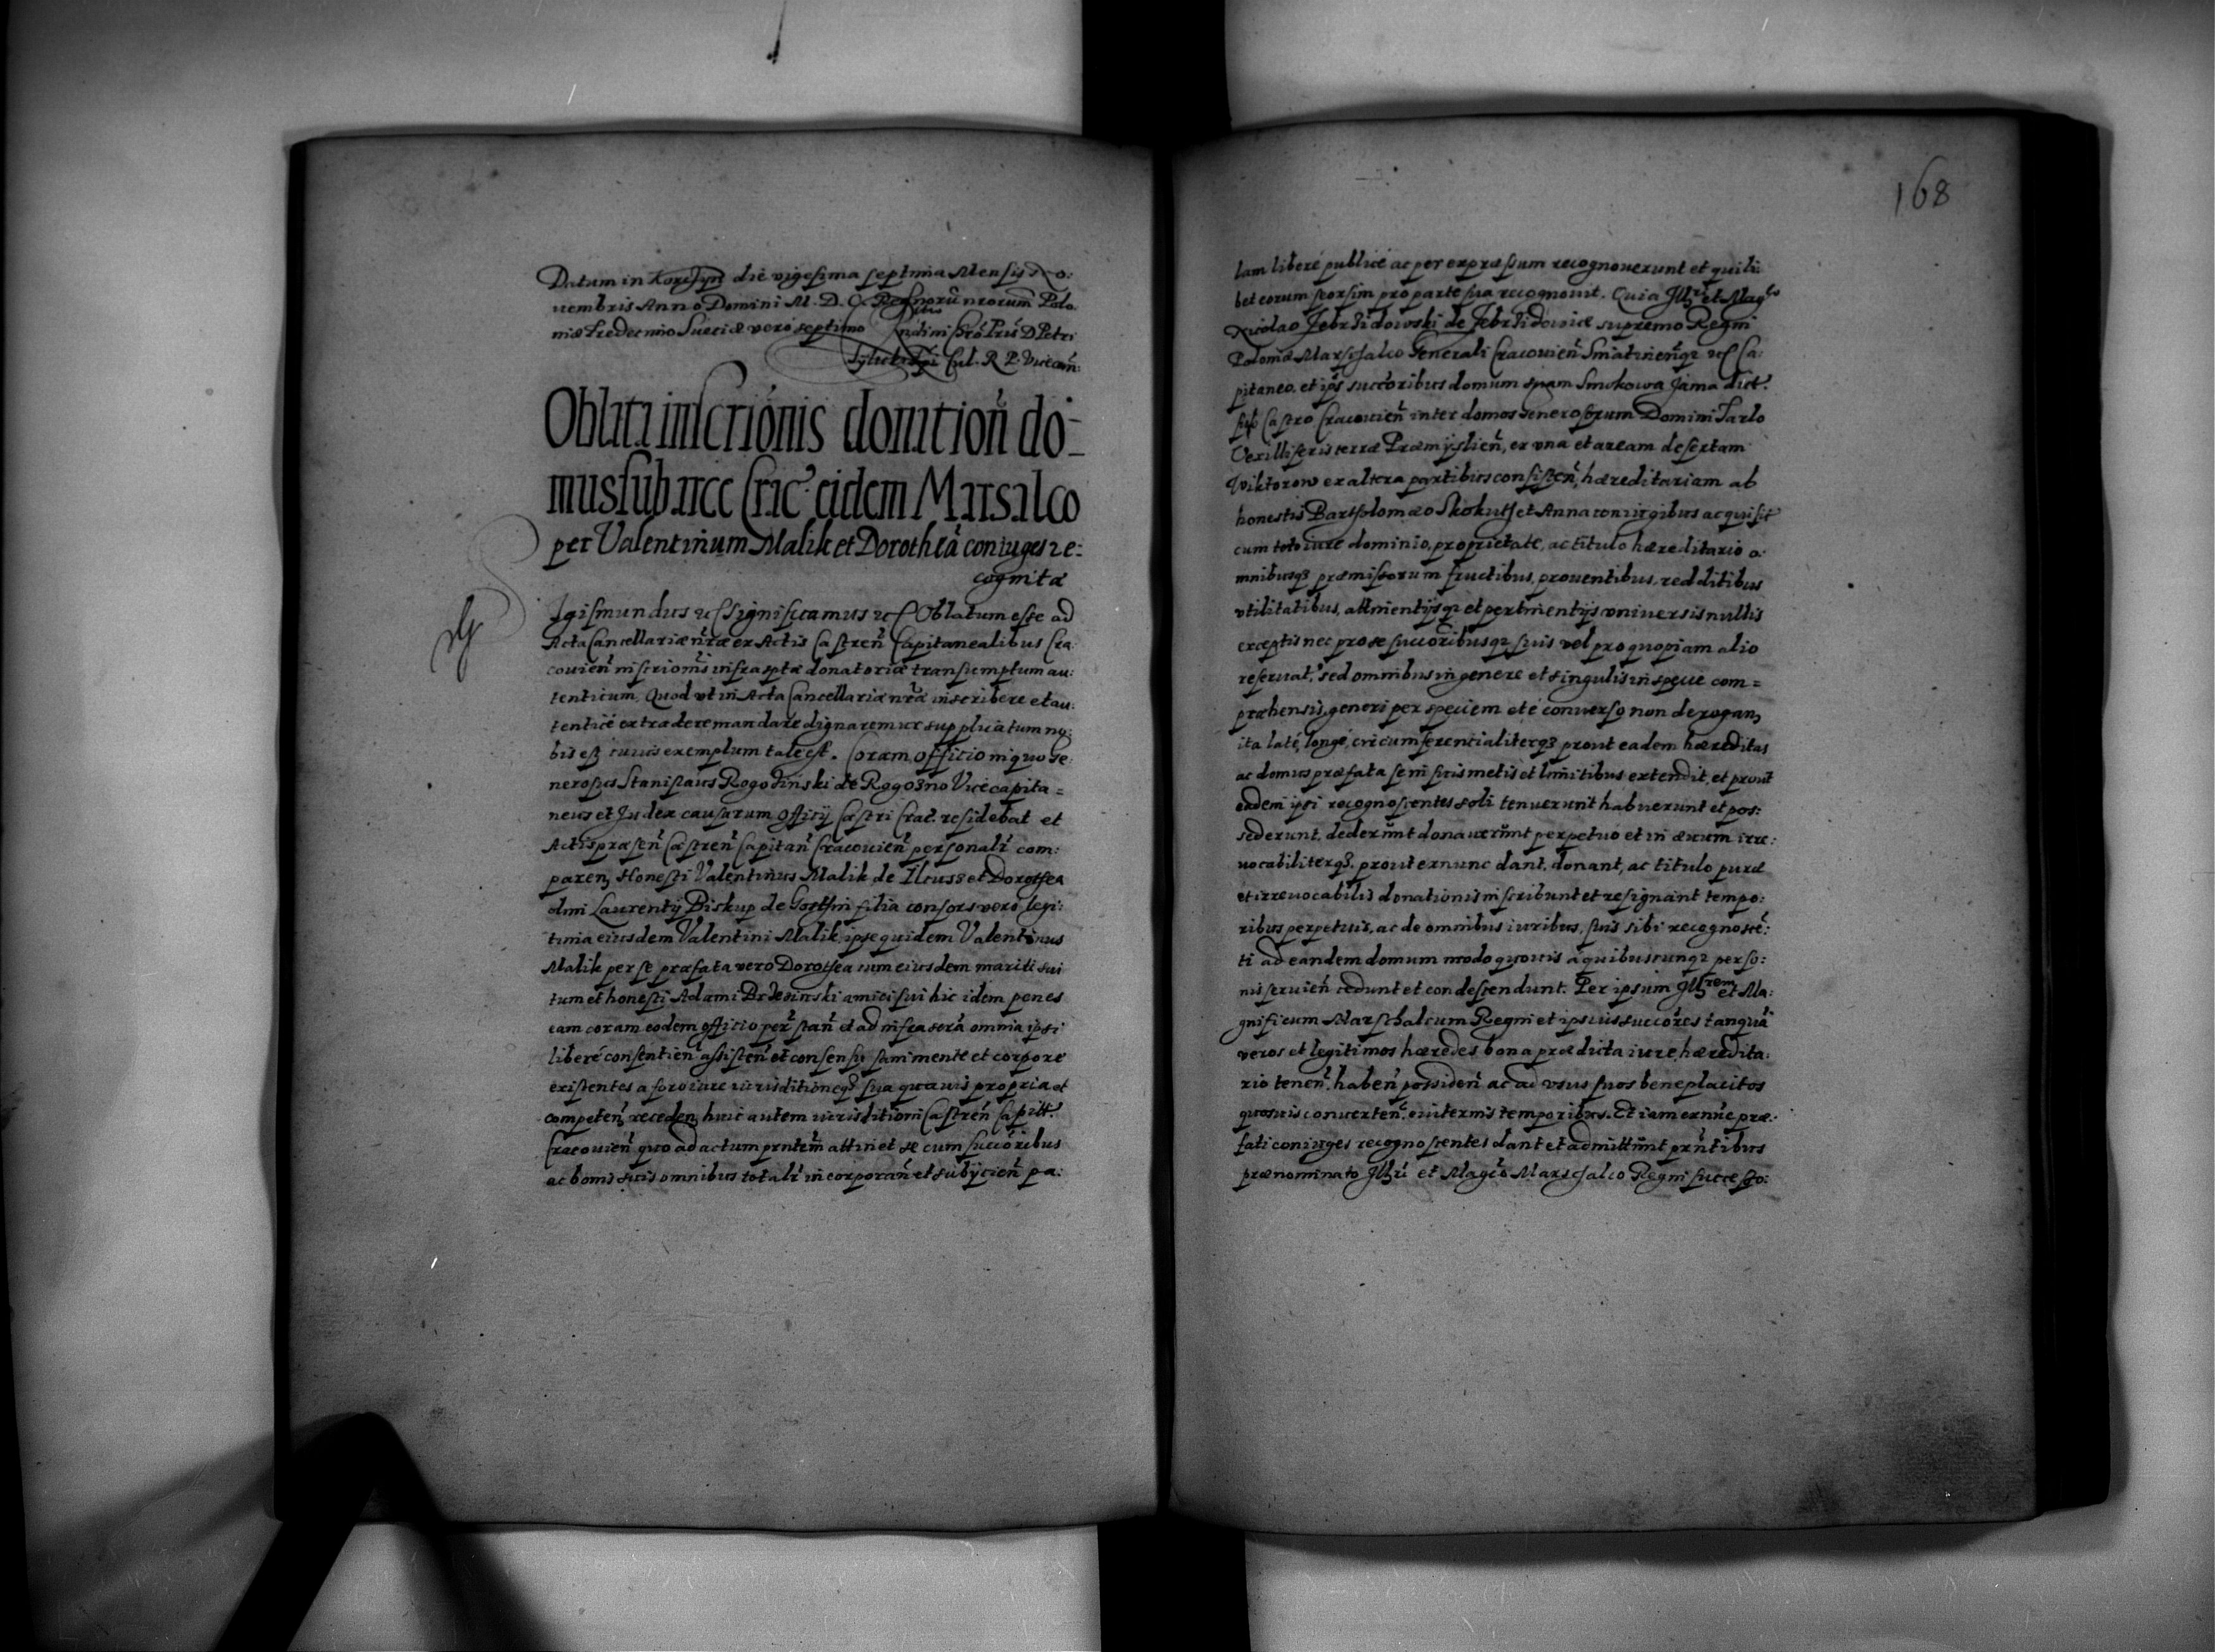 Datum in Korczyn die vigesima septima Mensis No:
uembris Anno Domini M. D. C. Regnorū nrorum Polo:
niæ Tredecimo Sueciæ vero septimo
Tylicki Epi Cul. R P. Vicecan:
Oblata inscriōnis donation̄ do=
mus sub arce Crac. eidem Marsalco
per Valentinum Malik et Dorotheā coniuges re:
cognitæ
Igismundus etc Significamus etc Oblatum esse ad
Acta Cancellariæ nr̄æ ex Actis Castren̄ Capitanealibus Cra:
couien̄ inscriōnis infrasptæ donatoriæ transumptum au:
tenticum, Quod vt in Acta Cancellariæ nr̄æ inscribere et au:
tenticè extradere mandare dignaremur supplicatum no:
bis est cuius exemplum tale est. Coram officio in quo Ge
nerosus Stanislaus Rogoziński de Rogozno Vicecapita=
neus et Judex causarum officij Castri Crac. residebat et
Actis præsen̄ Castren̄ Capitan̄ Cracouien̄ personalr̄ com:
paren, Honesti Valentinus Malik de Ilcusz et Dorothea
olim Laurentij Biskup de filia consors vero legi:
tima eiusdem Valentini Malik, ipse quidem Valentinus
Malik per se præfata vero Dorothea cum eiusdem mariti sui
tum et honesti Adami Brzezinski amici sui hic idem penes
eam coram eodem officio per stan̄ et ad infrascrā omnia ipsi
liberè consentien̄ assisten̄ et consensu sani mente et corpore
existentes a foro iure iurisditioneq3 sua quauis propria et
competen, receden, huic autem iurisditioni Castren̄ Capitt.
Cracouien̄ quo ad actum prntem̄ attinet se cum succōribus
ac bonis suis omnibus totalr̄ incorporan̄ et subijcien̄ pa:
168
lam liberè publicè ac per expressum recognouerunt et quili:
bet eorum seorsim pro parte sua recognouit. Quia Illri et Magco
Nicolao Zebrzidowski de Zebrzidowicæ supremo Regni
Poloniæ Marschalco Generali Cracouien̄ Sniatinen̄q3 etc Ca:
pitaneo. et ips̄ succōribus domum suam Smokowa Jama dict.
sub Castro Cracouien̄ inter domos Generosorum Domini Tarlo
Vexilliferis terræ Præmijslien̄, ex vna et aream desertam
Wiktorow ex altera partibus consisten̄, hæreditariam ab
honestis Bartholomæo Skokuth et Anna coniugibus acquisit
cum toto iure dominio, proprietate, ac titulo hæreditario o:
mnibusq3 præmissorum fructibus, prouentibus, redditibus
vtilitatibus, attinentijsq3 et pertinentijs vniuersis nullis
exceptis nec pro se succōribusq3 suis vel pro quopiam alio
reseruat, sed omnibus in genere et singulis in specie com=
præhensis, generi per speciem et è conuerso non derogan,
ita latè, longè, circumferentialiterq3 prout eadem hæreditas
ac domus præfata se in suis metis et limitibus extendit, et prout
eadem ipsi recognoscentes soli tenuerunt habuerunt et pos:
sederunt, dederunt donauerunt perpetuo et in æuum irre:
uocabiliterq3, prout ex nunc dant, donant, ac titulo puræ
et irreuocabilis donationis inscribunt et resignant tempo:
ribus perpetuis, ac de omnibus iuribus, suis sibi recognoscē:
ti ad eandem domum modo quouis à quibuscunq3 perso:
nis seruien̄ cedunt et condescendunt. Per ipsum Illrem et Ma:
gnificum Marschalcum Regni et ipsius succōres tanquā
veros et legitimos hæredes bona prædicta iure hæredita:
rio tenen̄, haben̄ possiden̄ ac ad vsus suos beneplacitos
quosuis conuerten̄, euiternis temporibus. Et iam exnn̄c præ:
fati coniuges recognoscentes dant et admittunt prn̄tibus
prænominato Illri et Magco Marschalco Regni successo: